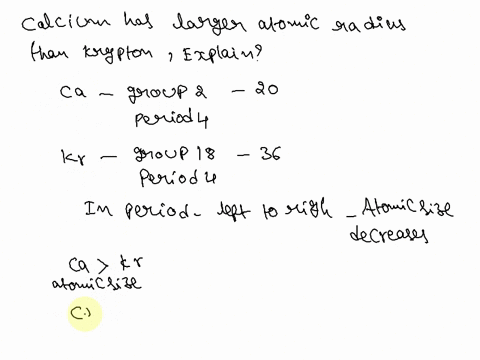 Calcium has larger atomic radius
than krypton, Explain?
Ca - group 2 - 20
period 4
Kr - group 18 - 36
Period 4
In period - left to righ - Atomic size
decreases
Ca > Kr
atomic size